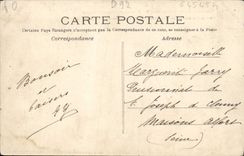 D92
CARTE POSTALE
Certains Pays étrangers n'acceptent pas la Correspondance de ce côté, se renseigner à la Poste
Correspondance
Adresse
Bonsoir
et
baisers
Mademoiselle
Marguerite Jarry
Pensionnat de
St Joseph de Cluny
Maisons Alfort
(Seine)